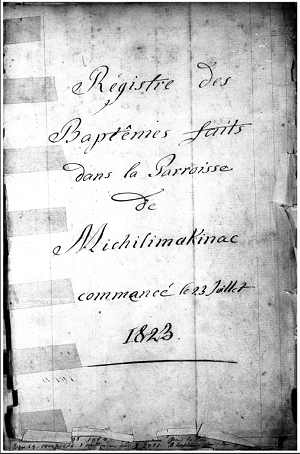 Régistre des
Baptêmes faits
dans la Parroisse
de
Michilimakinac
commancé le 23 Juillet
1823.